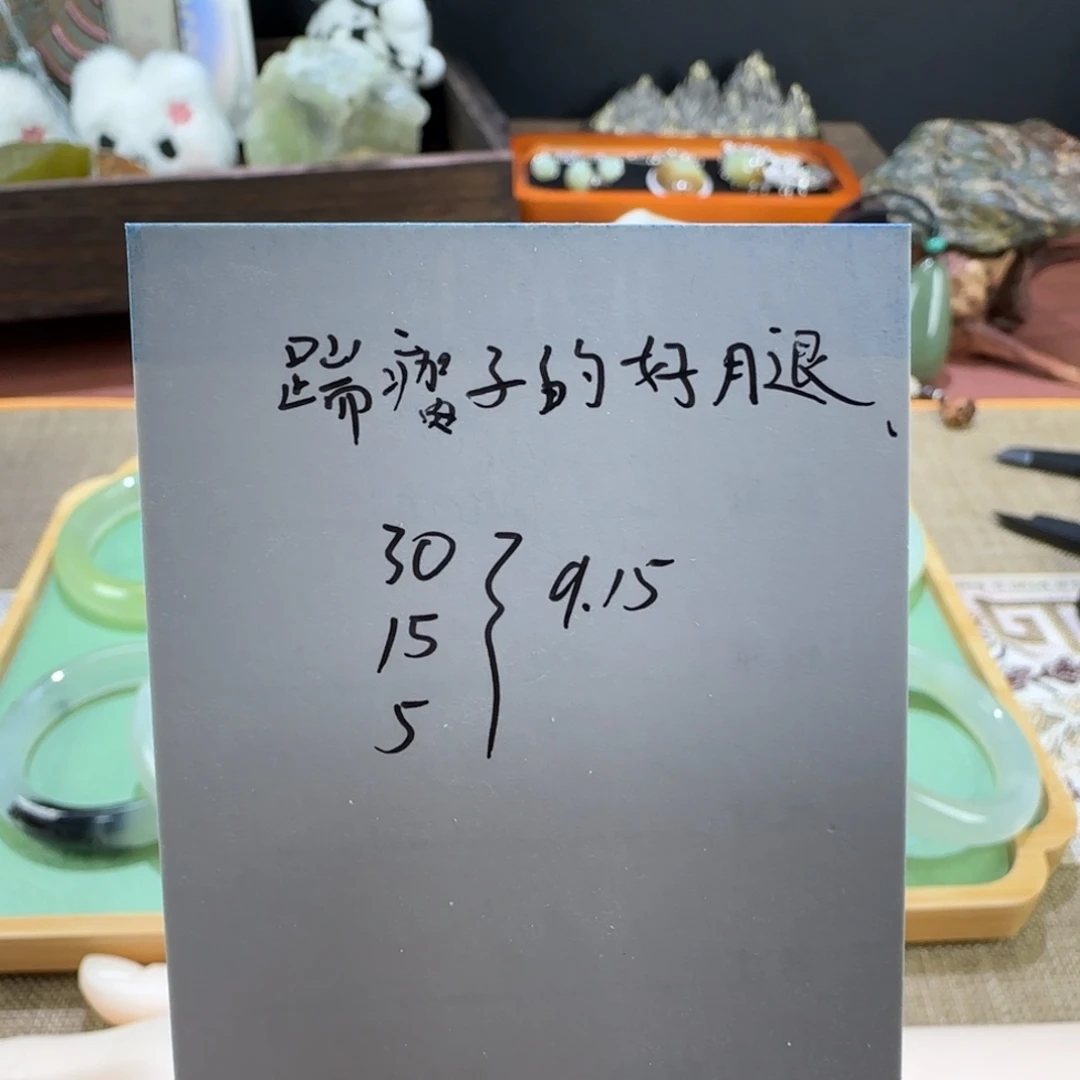 踹瘸子的好腿、
30
15 } 9.15
5